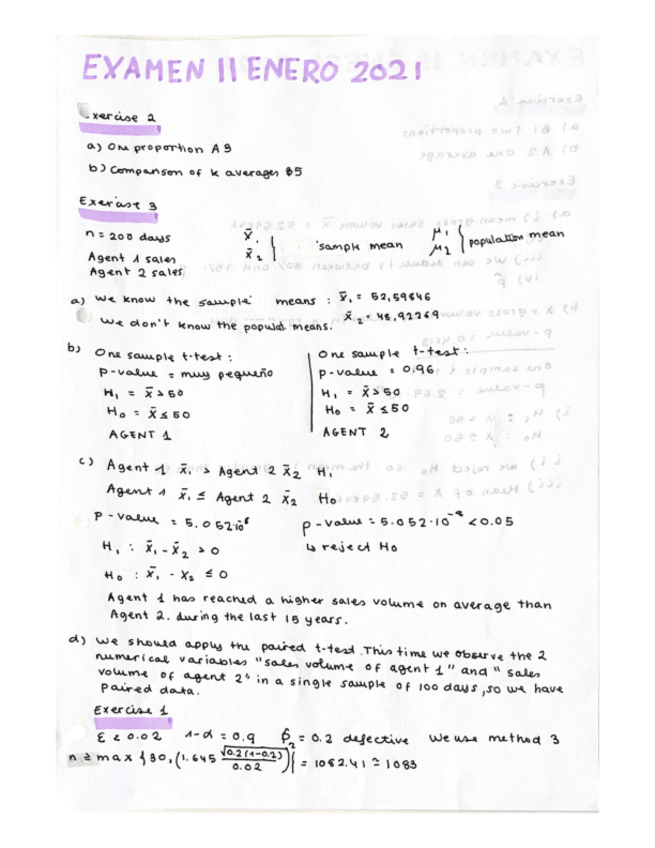 EXAMEN 11 ENERO 2021
Exercise 2
a) One proportion A3
b) Comparison of k averages B5
Exercise 3
n = 200 days
Agent 1 sales
Agent 2 sales
x̄₁
x̄₂ } sample mean
μ₁
μ₂ } population mean
a) We know the sample means : x̄₁ = 52,59846
x̄₂ = 48,92269
We don't know the populat. means.
b) One sample t-test :
p-value = muy pequeño
H₁ = x̄ > 50
H₀ = x̄ ≤ 50
AGENT 1
One sample t-test :
p-value = 0,96
H₁ = x̄ > 50
H₀ = x̄ ≤ 50
AGENT 2
c) Agent 1 x̄₁ > Agent 2 x̄₂ H₁
Agent 1 x̄₁ ≤ Agent 2 x̄₂ H₀
p-value = 5.052·10⁻⁸
p-value = 5.052·10⁻⁸ < 0.05
H₁ : x̄₁ - x̄₂ > 0
↳ reject H₀
H₀ : x̄₁ - x₂ ≤ 0
Agent 1 has reached a higher sales volume on average than
Agent 2. during the last 15 years.
d) We should apply the paired t-test. This time we observe the 2
numerical variables "sales volume of agent 1" and "sales
volume of agent 2" in a single sample of 100 days, so we have
paired data.
Exercise 1
ε ≤ 0.02 1-α = 0.9 p̂₂ = 0.2 defective We use method 3
n ≥ max {30, (1.645 √0.2(1-0.2) / 0.02)} = 1082.41 ≅ 1083